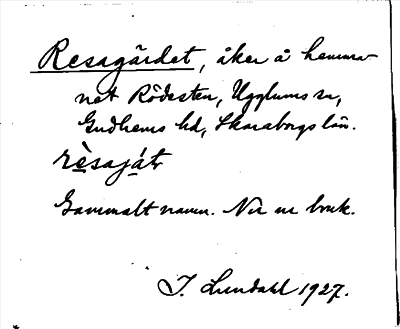 Resagärdet, åker å hemma-
net Rödesten, Ugglums sn,
Gudhems hd, Skaraborgs län.
rèsajátr
Gammalt namn. Nu ur bruk.
I. Lundahl 1927.